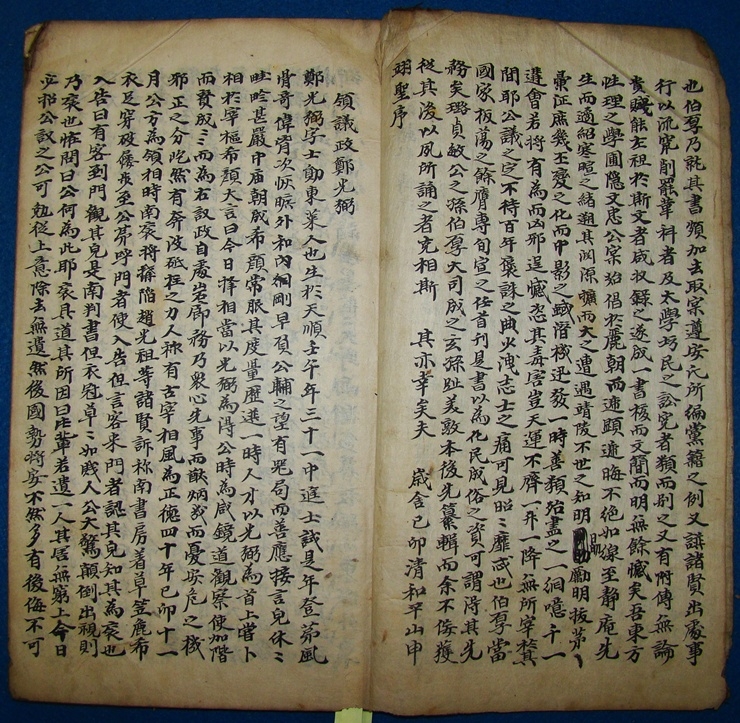 也伯厚乃就其書煩加去取宗遵安氏所編黨籍之例又諱諸賢出處事
行以流竄削罷輩科者及太學坊民之訟冤者類而別之又有附傳無論
貴賤能左祖於斯文者咸收錄之遂成一書核而文簡而明無餘憾矣吾東方
性理之學圃隱文忠公宗始倡於麗朝而連顯連晦不絶如線至靜庵先
生而適紹寒暄之緒遡其淵源曠而大之遭遇晴陵不世之知明勵明拔茅
彙征庶幾丕變之化而中影之蜮潛機迅發一時善類殆盡之一網噫千一
遘會若將有為而凶邪逞憾恣其毒害豈天運不齊一升一降無所宰於其
間耶公議之定不待百年褒誅之典少洩志士之痛可見昭昭靡忒也伯厚當
國家板蕩之餘膺專旬宣之任首刊是書以為化民成俗之資可謂得其先
務矣璐貞敏公之孫伯厚大司成之玄孫趾美敦本後先纂輯而余不佞獲
從其後以夙所誦之者克相斯 其亦幸矣夫 歲舍己卯清和平山申
翊聖序
領議政鄭光弼
鄭光弼字士勛東萊人也生於天順壬午年三十一中進士試是年登第風
骨奇偉胷次恢曠外和內剛早負公輔之望有器局而善應接言皃休
畦畛甚嚴中庙朝成希顔常服其度量歷進一時人才以光弼為首上嘗卜
相於宰樞希顔大言曰今日擇相當以光弼為得公時為咸鏡道觀察使加階
而贊成三而為右議政自處岩廊務乃衆心先事而猷炳幾而憂安危之機
邪正之分屹然有奔波砥柱之力人称有古宰相風為正德四十年己卯十一
月公方為領相時南衮將搆陷趙光祖等諸賢訴称南書房着草笠鹿布
衣足穿破屨步至公第呼門者使入告但言客来門者認其皃知其為衮也
入告曰有客到門觀其皃是南判書但衣冠草草如賎人公大驚顛倒出視則
乃衮也恠問曰公何為此耶衮具道其所因曰此輩若遺一人其居無窮上命日
必招公議之公可勉從上意除去無遺然後國勢將安不然多有後悔不可